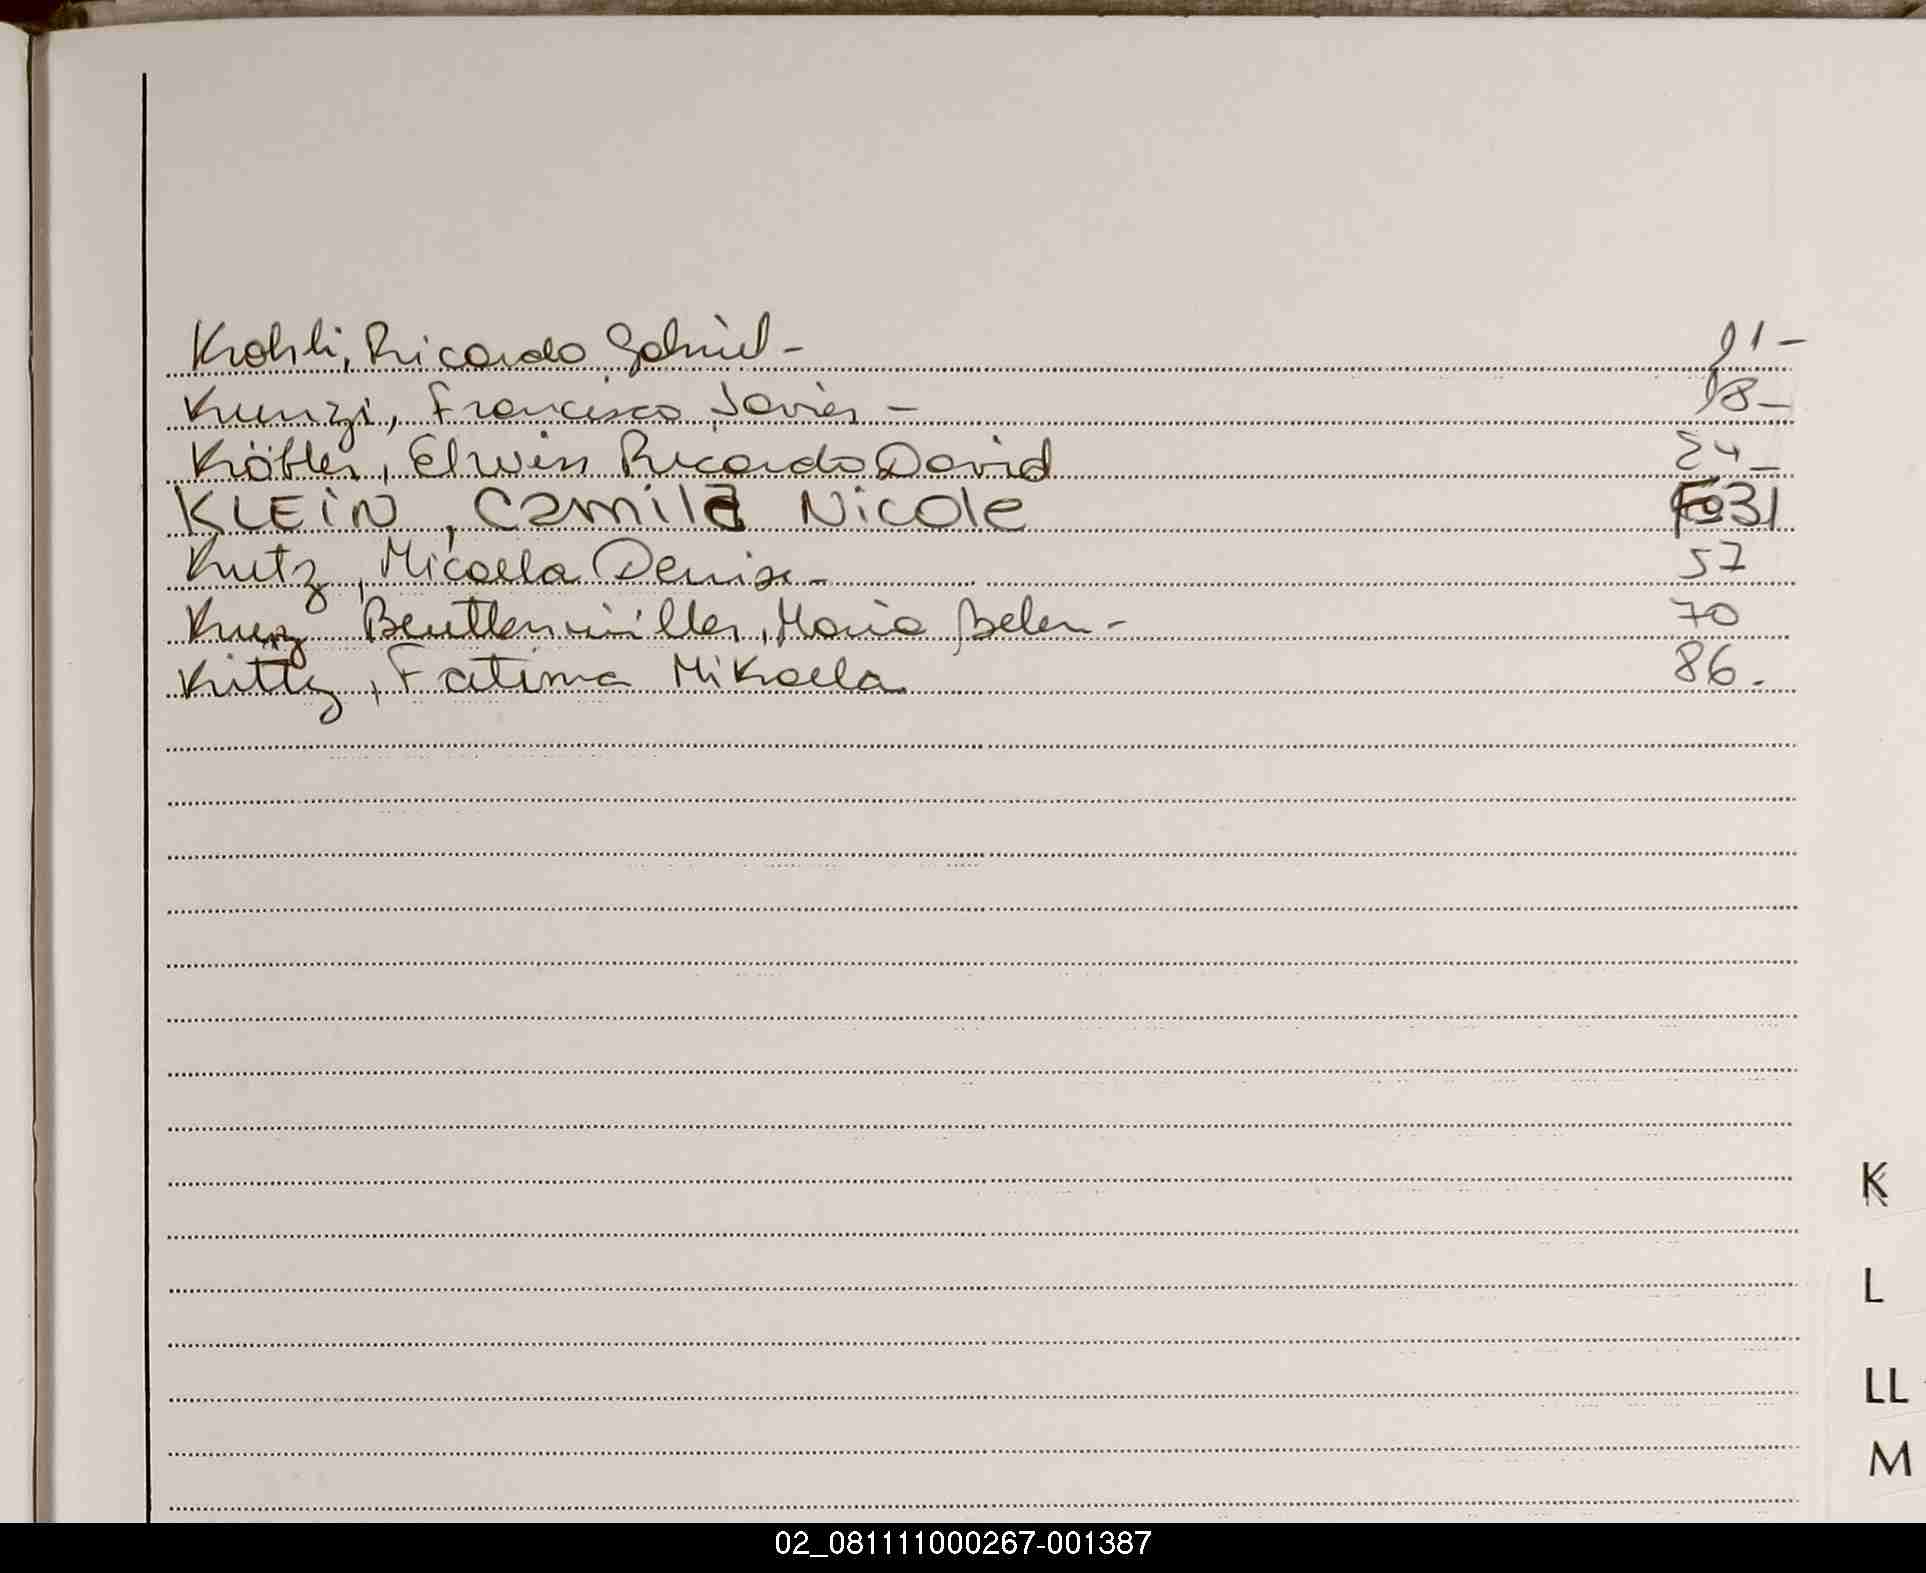 Krohli, Ricardo Gabriel - 01 -
Kunzi, Francisco Javier - 18 -
Köbler, Elwin Ricardo David 24 -
KLEIN, Camila Nicole Fo 31
Kutz, Micaela Denise - 57
Kurz Beutlenmüller, Maria Belen - 70
Kuttz, Fatima Mikaela 86.
K
L
LL
M
02_081111000267-001387